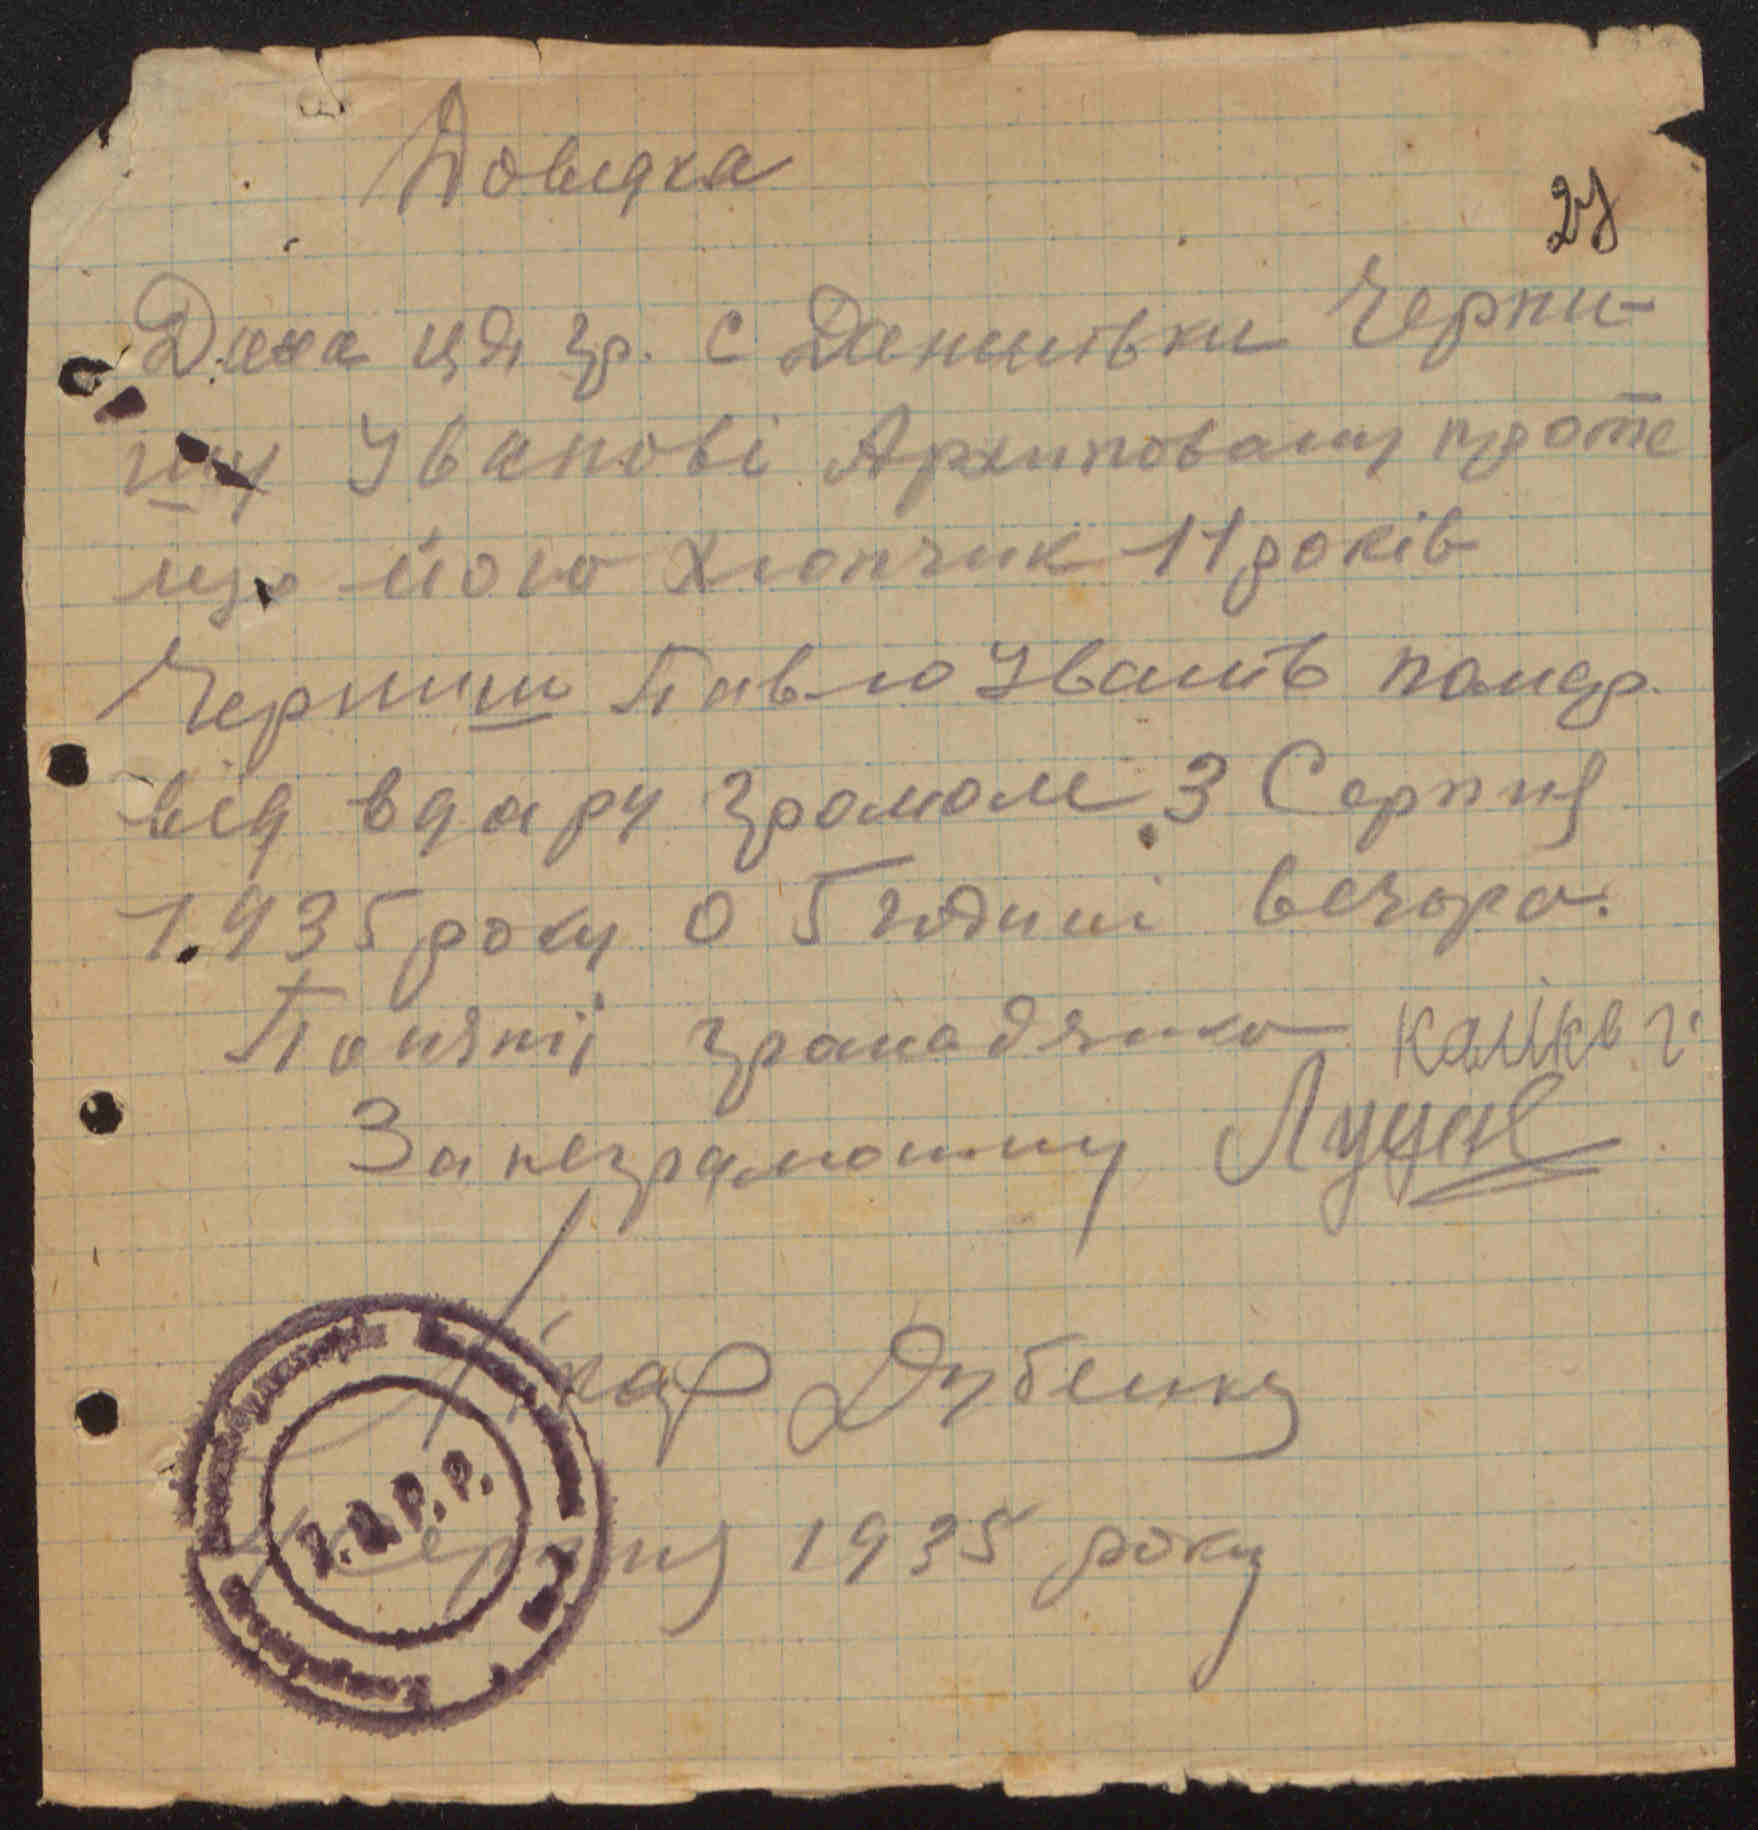 Довідка
27
Дана ця гр. с Данинівки Черни-
шу Іванові Архиповичу проте
що його хлопчик 11 років
Черниш Павло Іванів помер.
від вдару громом 3 Серпня
1935 року о 5 годині вечора.
Понятії громадянко
За неграмотну
Лікар Дубенко
Серпня 1935 року